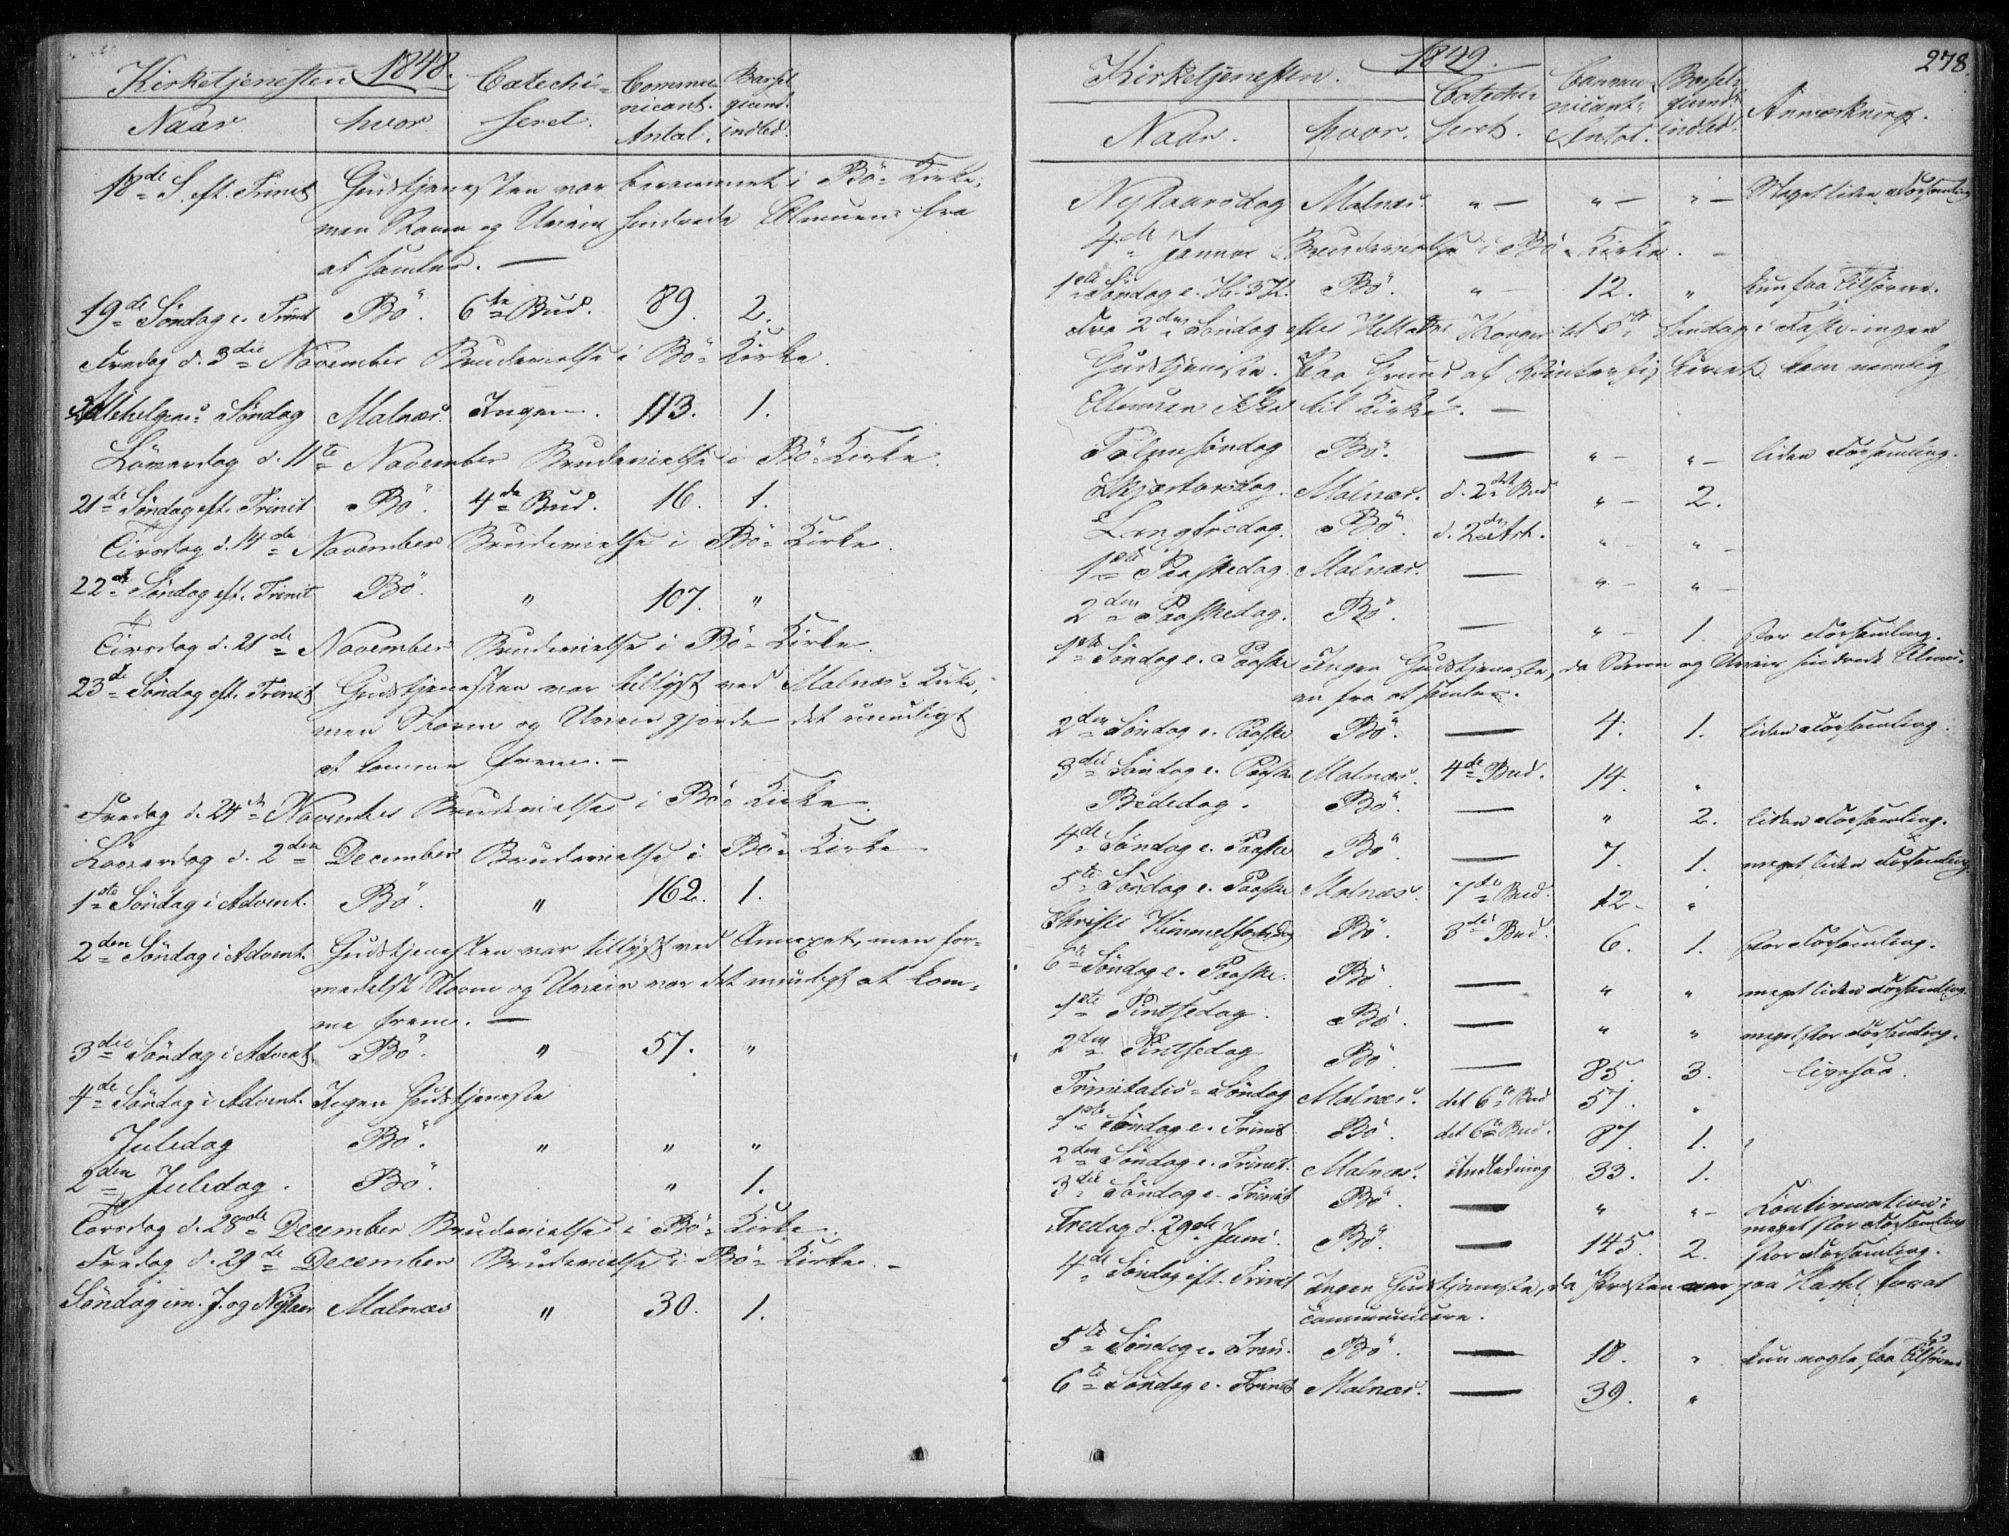 Kirketjenesten 1848. Catechi- Commu- Barsel-
Naar hvor seret. nicant. qvind.
Antal. indled.
18de S. eft. Trinit Gudstjenesten var berammet i Bö Kirke;
men Storm og Uveir hindrede Almuen fra
at samles. —
19de Söndag e. Trinit Bö. 6te Bud. 89. 2.
Fredag d. 3die November Brudevielse i Bö Kirke.
Allehelgens Söndag Malnæs. Ingen. 113. 1.
Löverdag d. 11te November Brudevielse i Bö Kirke.
21de Söndag eft. Trinit Bö. 4de Bud. 16. 1.
Tirsdag d. 14de November Brudevielse i Bö Kirke.
22de Söndag eft. Trinit Bö. " 107. "
Tirsdag d. 21de November Brudevielse i Bö Kirke.
23de Söndag eft. Trinit Gudstjenesten var tillyst ved Malnæs Kirke,
men Storm og Uveir gjorde det umuligt
at komme frem. —
Fredag d. 24de November Brudevielse i Bö Kirke.
Löverdag d. 2den December Brudevielse i Bö Kirke.
1ste Söndag i Advent. Bö. " 162. 1.
2den Söndag i Advent. Gudstjenesten var tillyst ved Annexet, men for-
medelst Storm og Uveir var det umuligt at kom-
me frem. —
3die Söndag i Advent Bö. " 57. "
4de Söndag i Advent. Ingen Gudstjeneste
Juledag Bö. " " "
2den Juledag. Bö. " 1.
Torsdag d. 28de December Brudevielse i Bö Kirke.
Fredag d. 29de December Brudevielse i Bö Kirke. —
Söndag im. J. og Nytaar Malnæs " 30. 1.
278
Kirketjenesten. 1849. Catechi- Commu- Barsel-
Naar. hvor. seret. nicant- qvind. Anmærkning.
Antal. indled.
Nytaarsdag Malnæs. " — " — " — Meget liden Forsamling
4de Januar Brudevielse i Bö Kirke. —
1ste Söndag e. H. 3 K. Bö. " — 12. " kun faa Tilhörere.
Fra 2den Söndag efter Hellig tre Konger til 5te Söndag i Faste ingen
Gudstjeneste. Paa Grund af kom nemlig
Almuen ikke til Kirke. —
Palmesöndag Bö. — " — " — liden Forsamling.
Skjærtorsdag. Malnæs. d. 2det Bud " — 2.
Langfredag. Bö. d. 2den Art. " — " —
1ste Paaskedag. Malnæs. — " — " —
2den Paaskedag. Bö. — " — 1. stor Forsamling.
1ste Söndag e. Paaske Ingen Gudstjeneste, da Storm og Uveir hindrede Almu-
en fra at samles.
2den Söndag e. Paaske Bö. — 4. 1. liden Forsamling.
3die Söndag e. Paaske Malnæs. 4de Bud. 14. "
Bededag. Bö. — " 2. liden Forsamling.
4de Söndag e. Paaske Bö. — 7. 1. meget liden Forsamling
5te Söndag e. Paaske Malnæs. 7de Bud. 12. "
Christi Himmelfartsdag Bö. 8de Bud. 6. 1. stor Forsamling.
6te Söndag e. Paaske. Bö. — " " meget liden Forsamling.
1ste Pintsedag. Bö. — " " meget stor Forsamling.
2den Pintsedag Bö. — 85. 3. ligesaa.
Trinitatis-Söndag Malnæs. det 6te Bud 57. "
1ste Söndag e. Trinit Bö. det 6te Bud. 87. 1.
2den Söndag e. Trinit. Malnæs. Indledning 33. 1.
3die Söndag e. Trinit Bö. — " " — Confirmation;
meget stor Forsamling
Fredag d. 29de Juni. Bö. — 145. 2. stor Forsamling.
4de Söndag eft. Trinit Ingen Gudstjeneste, da Præsten var paa Hassel for at
communicere.
5te Söndag e. Trin. Bö. — 18. " kun nogle faa Tilhörere
6te Söndag e. Trinit Malnæs. — 39. "